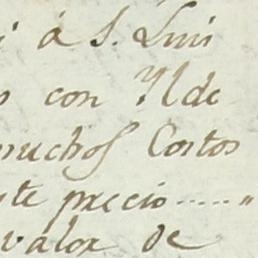 á S. Luis
con Ilde
muchos Costos
ste precio ..... "
valor de